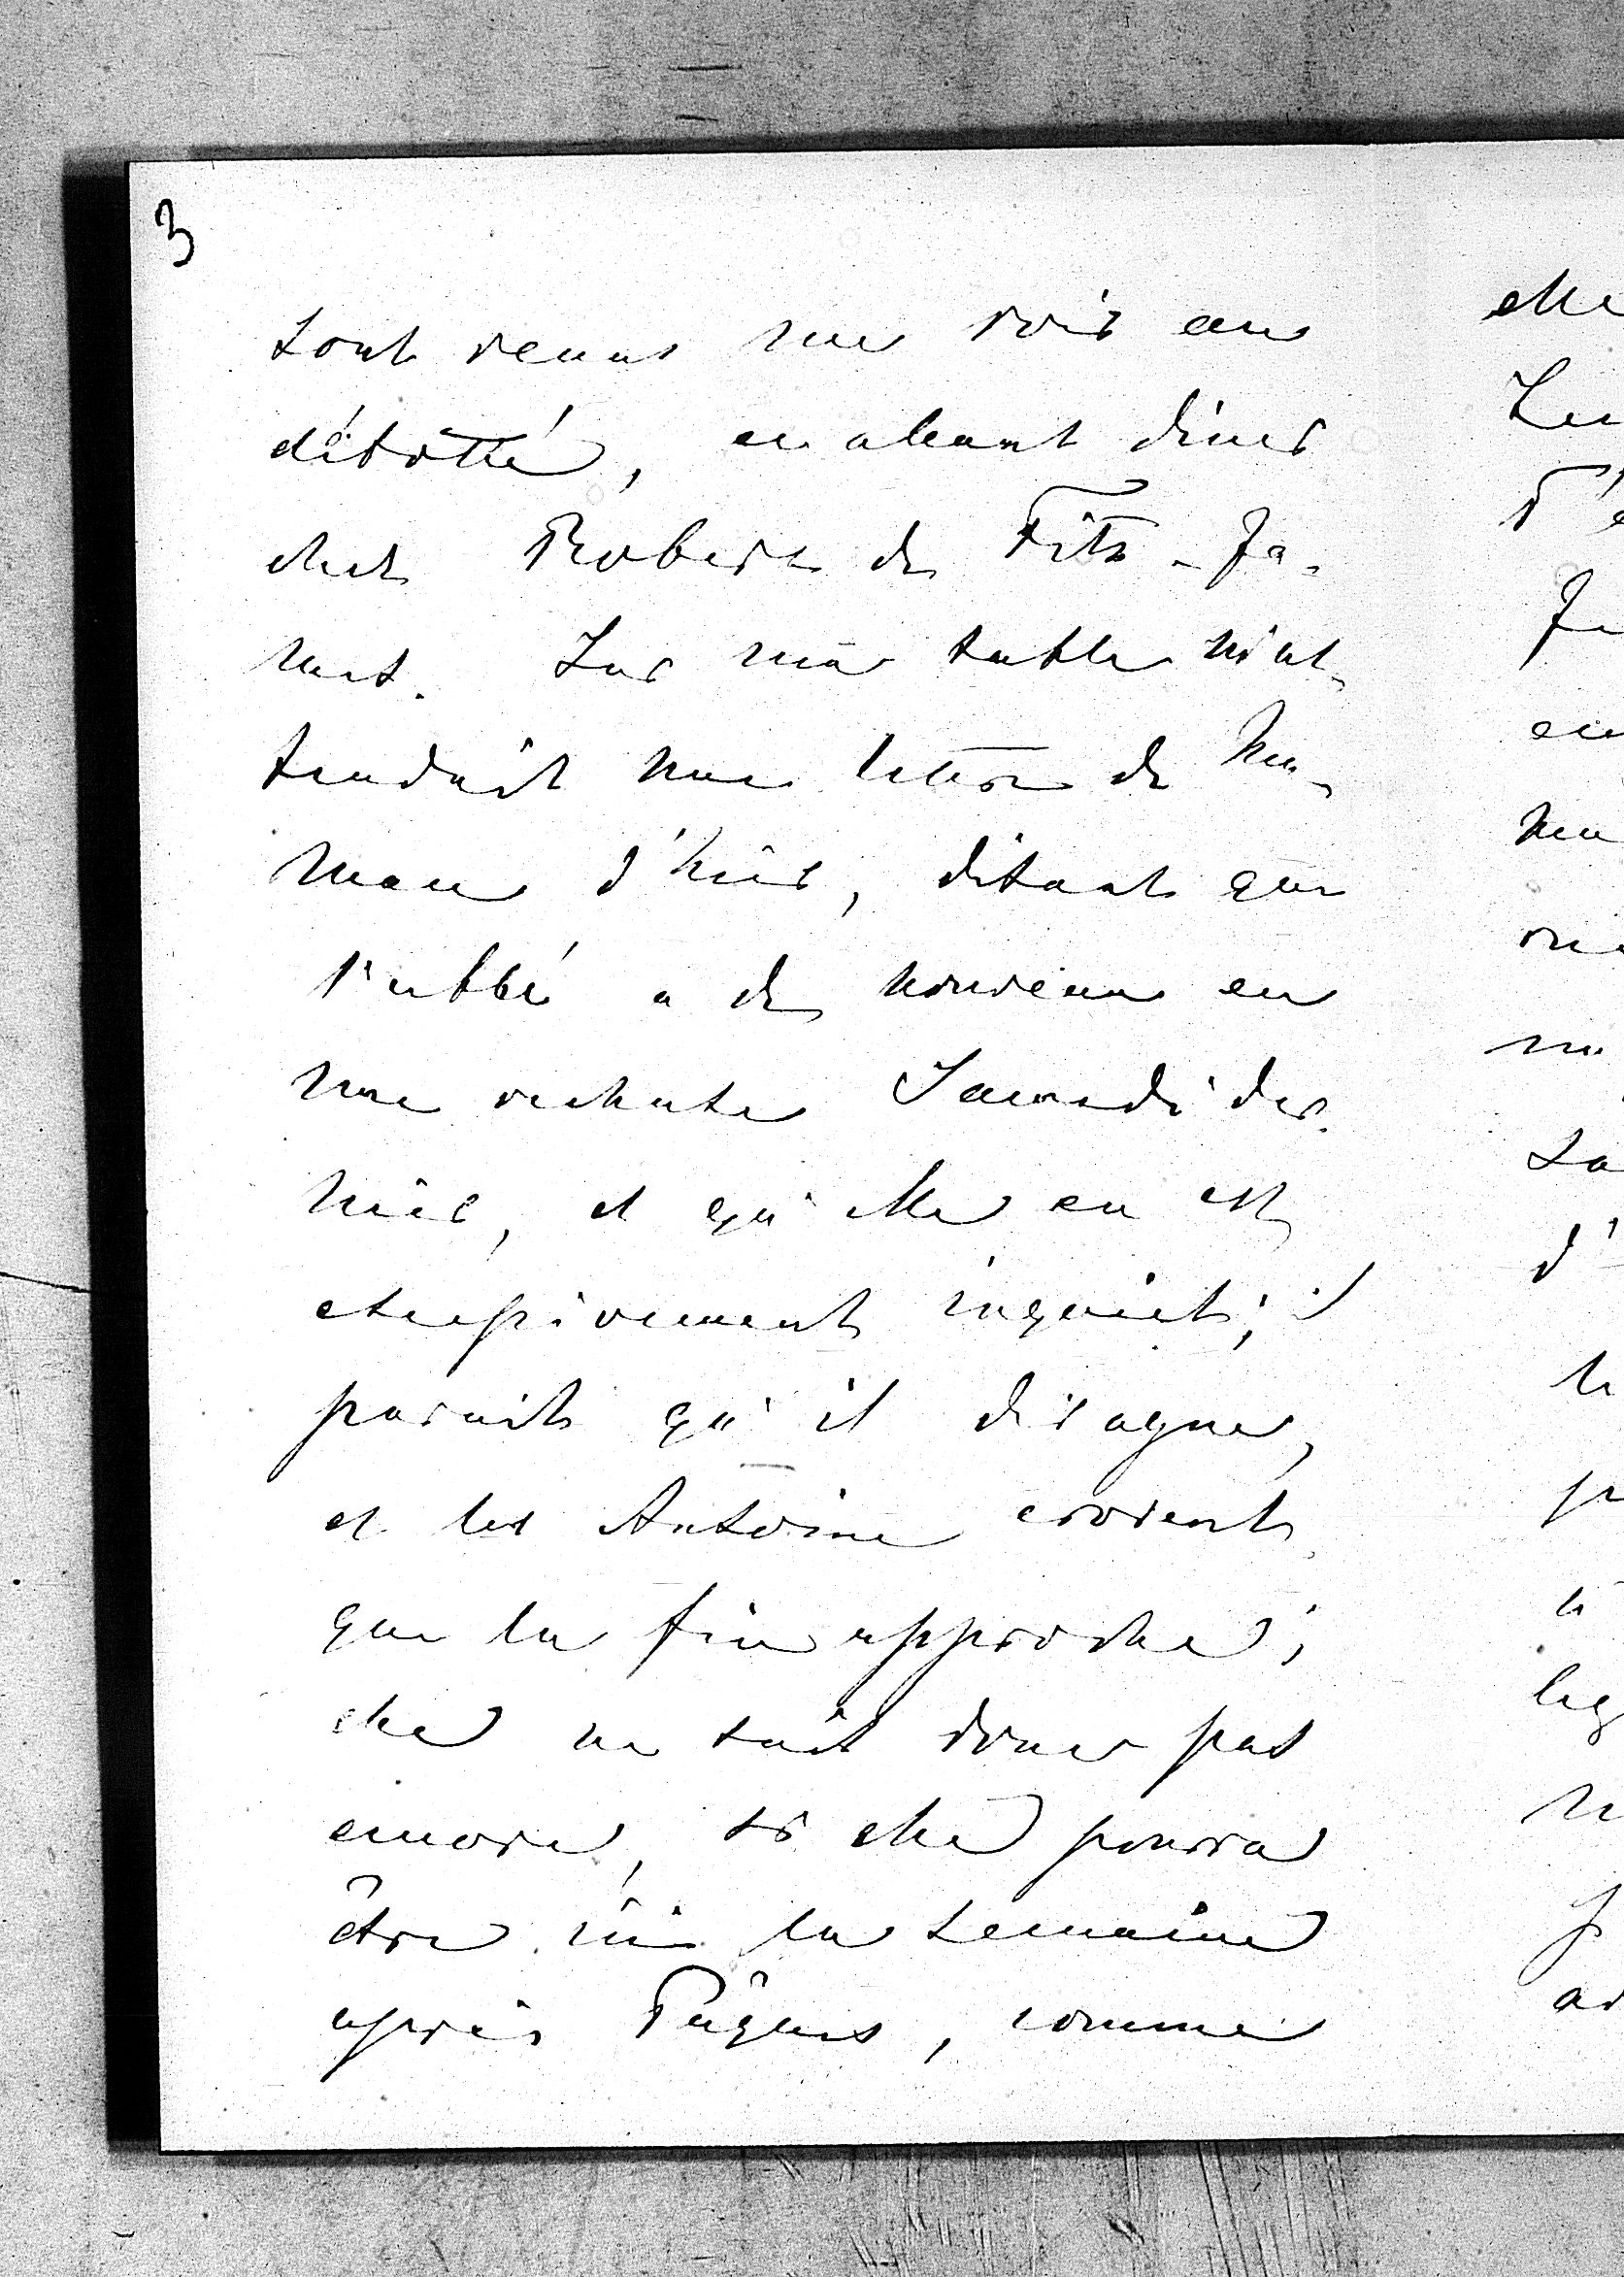 3
sont venus me voir au
débotté, en allant dîner
chez Robert de Fitz-Ja-
mes. Sur ma table m'at-
tendait une lettre de Ma-
man d'hier, disant que
l'abbé a de nouveau eu
une rechute Samedi der-
nier, et qu'elle en est
excessivement inquiète; il
parait qu'il divague,
et les Antoine croient
que la fin approche;
elle ne sait donc pas
encore, si elle pourra
être ici la semaine
après Pâques, comme